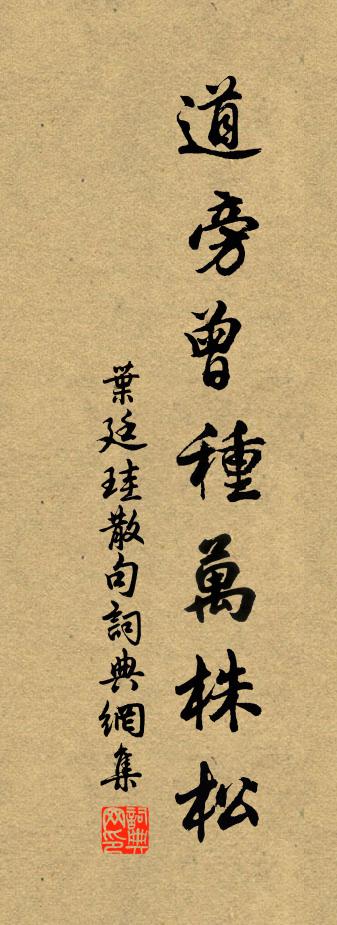 道旁曾種萬株松
葉廷珪散句詞典網集
詞典网印